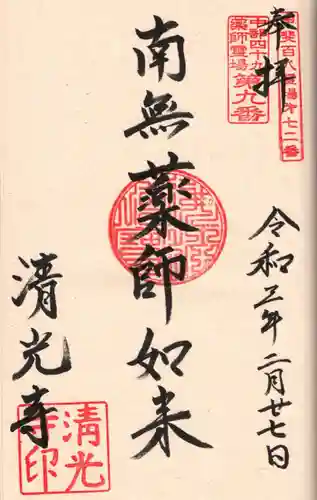 奉拝
甲斐百八霊場第七二番
中部四十九
薬師霊場
第九番
令和三年二月廿七日
南無薬師如来
清光寺
清光
寺印